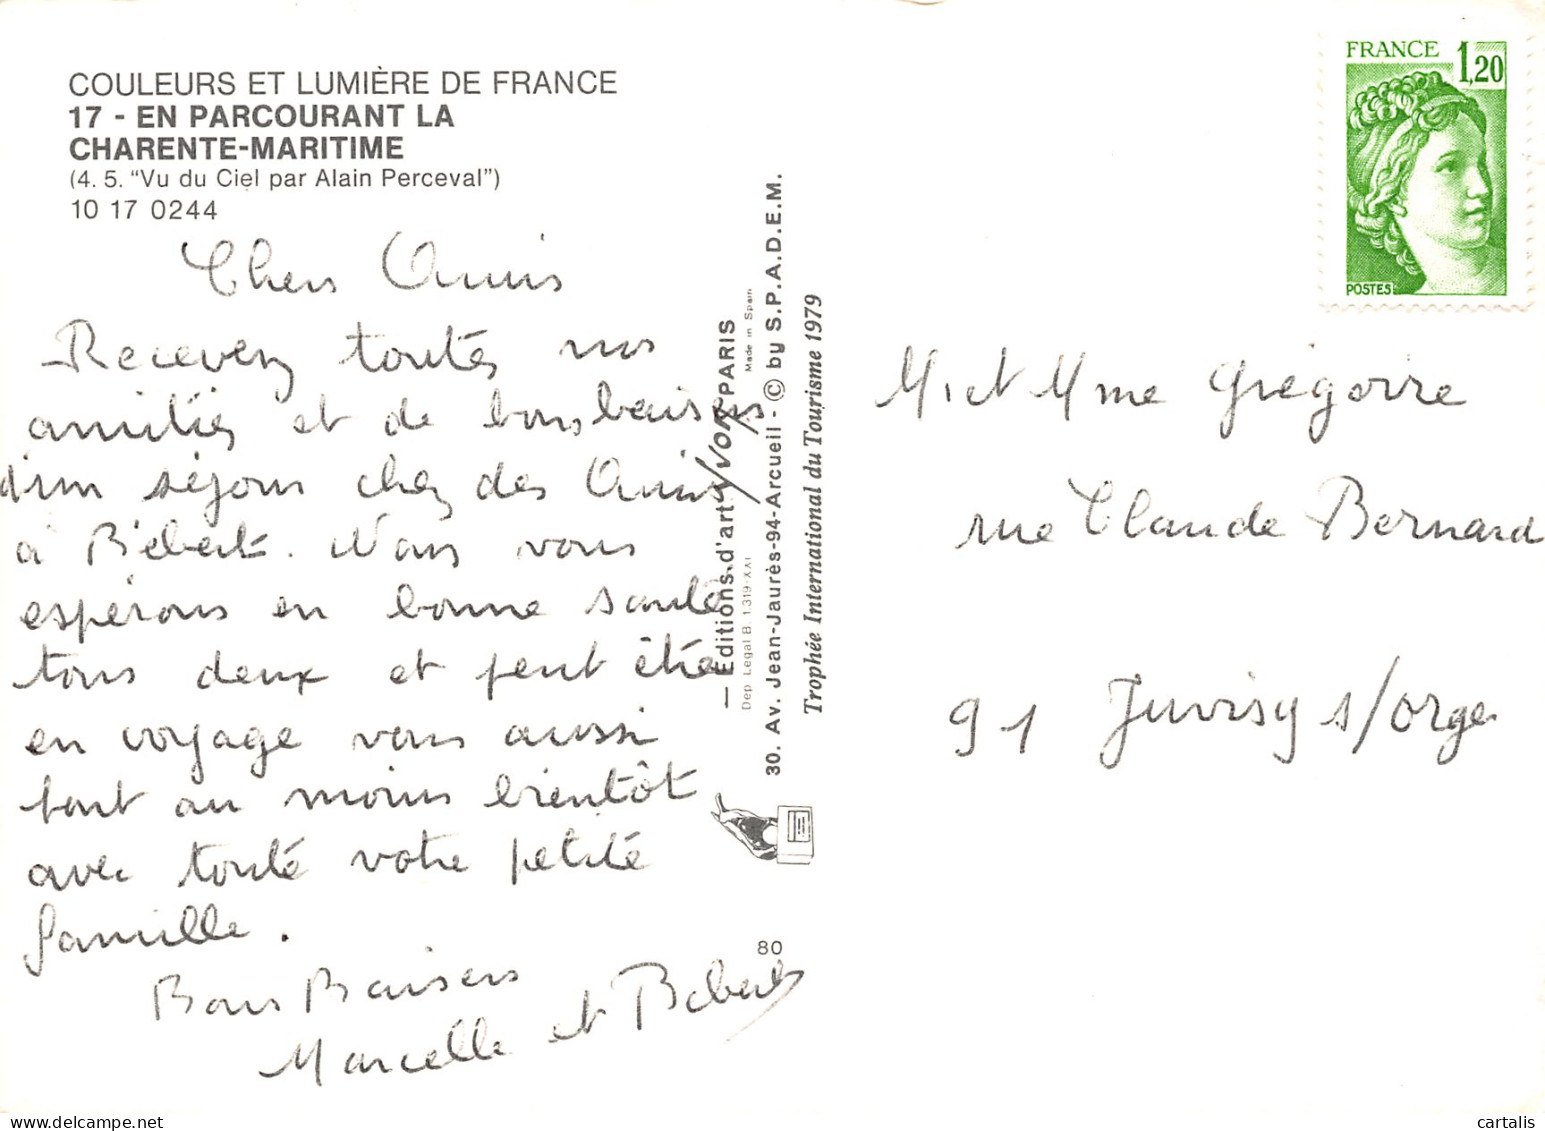 COULEURS ET LUMIÈRE DE FRANCE
17 - EN PARCOURANT LA
CHARENTE-MARITIME
(4. 5. "Vu du Ciel par Alain Perceval")
10 17 0244
Chers Amis
Recevez toutes nos
amitiés et de bons baisers
d'un séjour chez des Amis
à Bébert. Nous vous
espérons en bonne santé
tous deux et peut être
en voyage vous aussi
tout au moins bientôt
avec toute votre petite
famille.
Bons Baisers
Marcelle et Bébert
— Editions d'art YVON PARIS
Dep Legal B. 1.319-XXI
Made in Spain
30. Av. Jean-Jaurès-94-Arcueil - © by S.P.A.D.E.M.
Trophée International du Tourisme 1979
80
FRANCE 1,20
POSTES
M. et Mme Grégoire
rue Claude Bernard
91 Juvisy s/orge
cartalis
www.delcampe.net